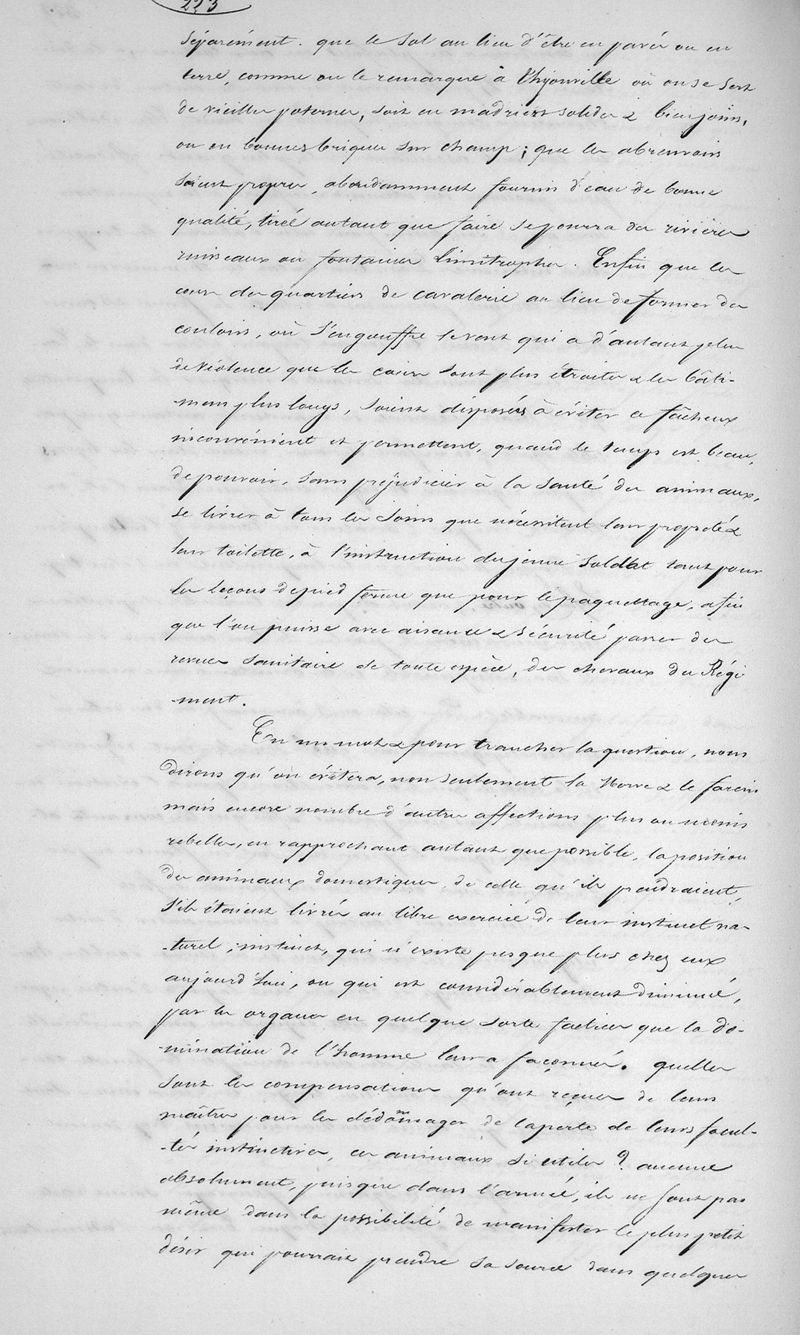 223
séparément. que le sol au lieu d'être en pavés ou en
terre, comme on le remarque à Thyonville où on se sert
de vieilles poternes, soit en madriers solides & bien joins,
ou en bonnes briques sur champ ; que les abreuvoirs
soient propres, abondamment fournis d'eau de bonne
qualité, tirée autant que faire se pourra des rivières
ruisseaux ou fontaines limitrophes. Enfin que les
cours des quartiers de cavalerie au lieu de former des
couloirs, où s'engouffre le vent qui a d'autant plus
de violence que les cours sont plus étroites & les bâti-
mens plus longs, soient disposés à éviter ce fâcheux
inconvénient et permettent, quand le temps est beau,
de pouvoir, sans préjudicier à la santé des animaux,
se livrer à tous les soins que nécessitent leur propreté &
leur toilette, à l'instruction du jeune soldat tant pour
les leçons de pied ferme que pour le paquettage, afin
que l'on puisse avec aisance & sécurité passer des
revues sanitaires de toute espèce, des chevaux du Régi
-ment.
En un mot & pour trancher la question, nous
dirons qu'on évitera, non seulement la Morve & le farcin
mais encore nombre d'autres affections plus ou moins
rebelles, en rapprochant autant que possible, la position
des animaux domestiques, de celle qu'ils prendraient,
s'ils étaient livrés au libre exercice de leur instinct na-
-turel ; instinct, qui n'existe presque plus chez eux
aujourd'hui, ou qui est considérablement diminué,
par les organes en quelque sorte factices que la do-
-mination de l'homme leur a façonnés. quelles
sont les compensations qu'ont reçues de leurs
maîtres pour les dédommager de la perte de leurs facul-
-tés instinctives, ces animaux si utiles ? aucune
absolument, puisque dans l'armée, ils ne sont pas
même dans la possibilité de manifester le plus petit
désir qui pourrait prendre sa source dans quelques